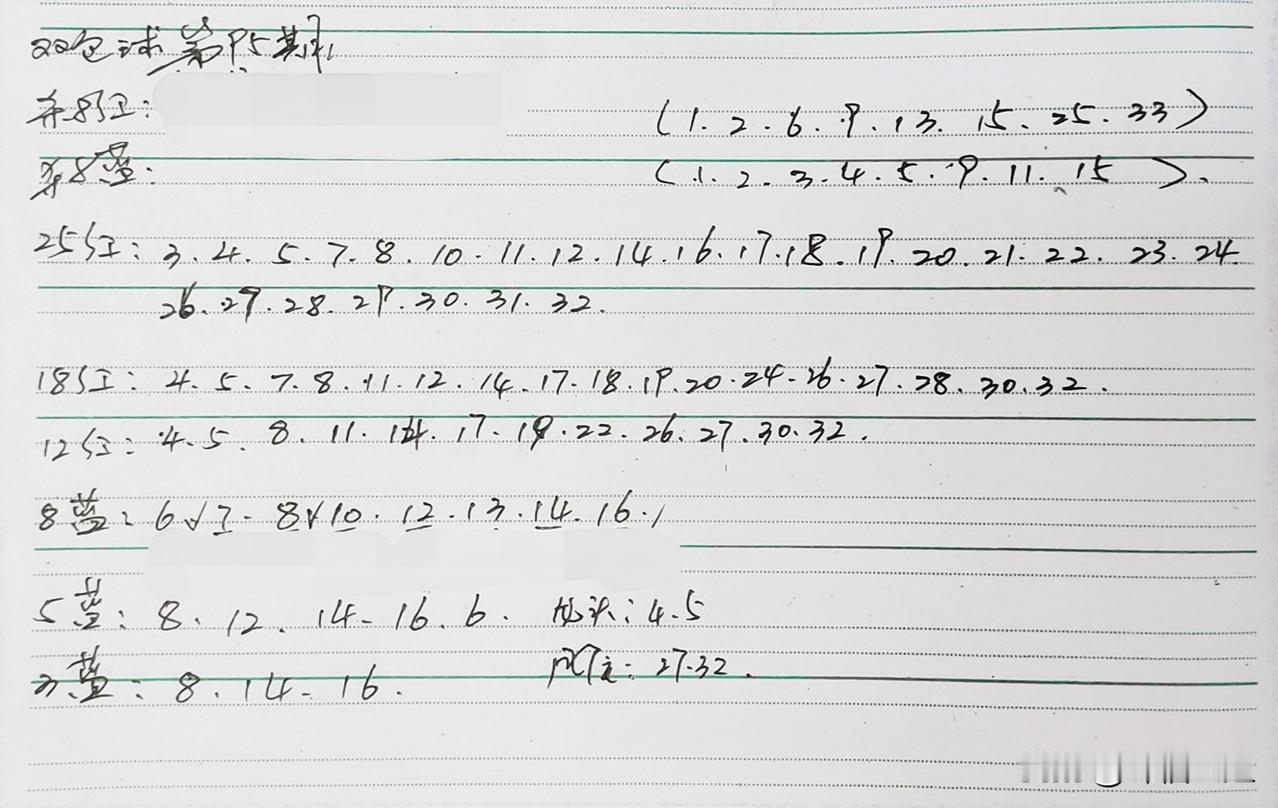 双色球第95期
杀8红: (1.2.6.9.13.15.25.33)
杀8蓝: (1.2.3.4.5.9.11.15).
25红: 3.4.5.7.8.10.11.12.14.16.17.18.19.20.21.22.23.24.
26.27.28.29.30.31.32.
18红: 4.5.7.8.11.12.14.17.18.19.20.24.26.27.28.30.32.
12红: 4.5.8.11.14.17.19.22.26.27.30.32.
8蓝: 6.7.8.10.12.13.14.16.
5蓝: 8.12.14.16.6. 龙头: 4.5
3蓝: 8.14.16. 凤尾: 27.32.